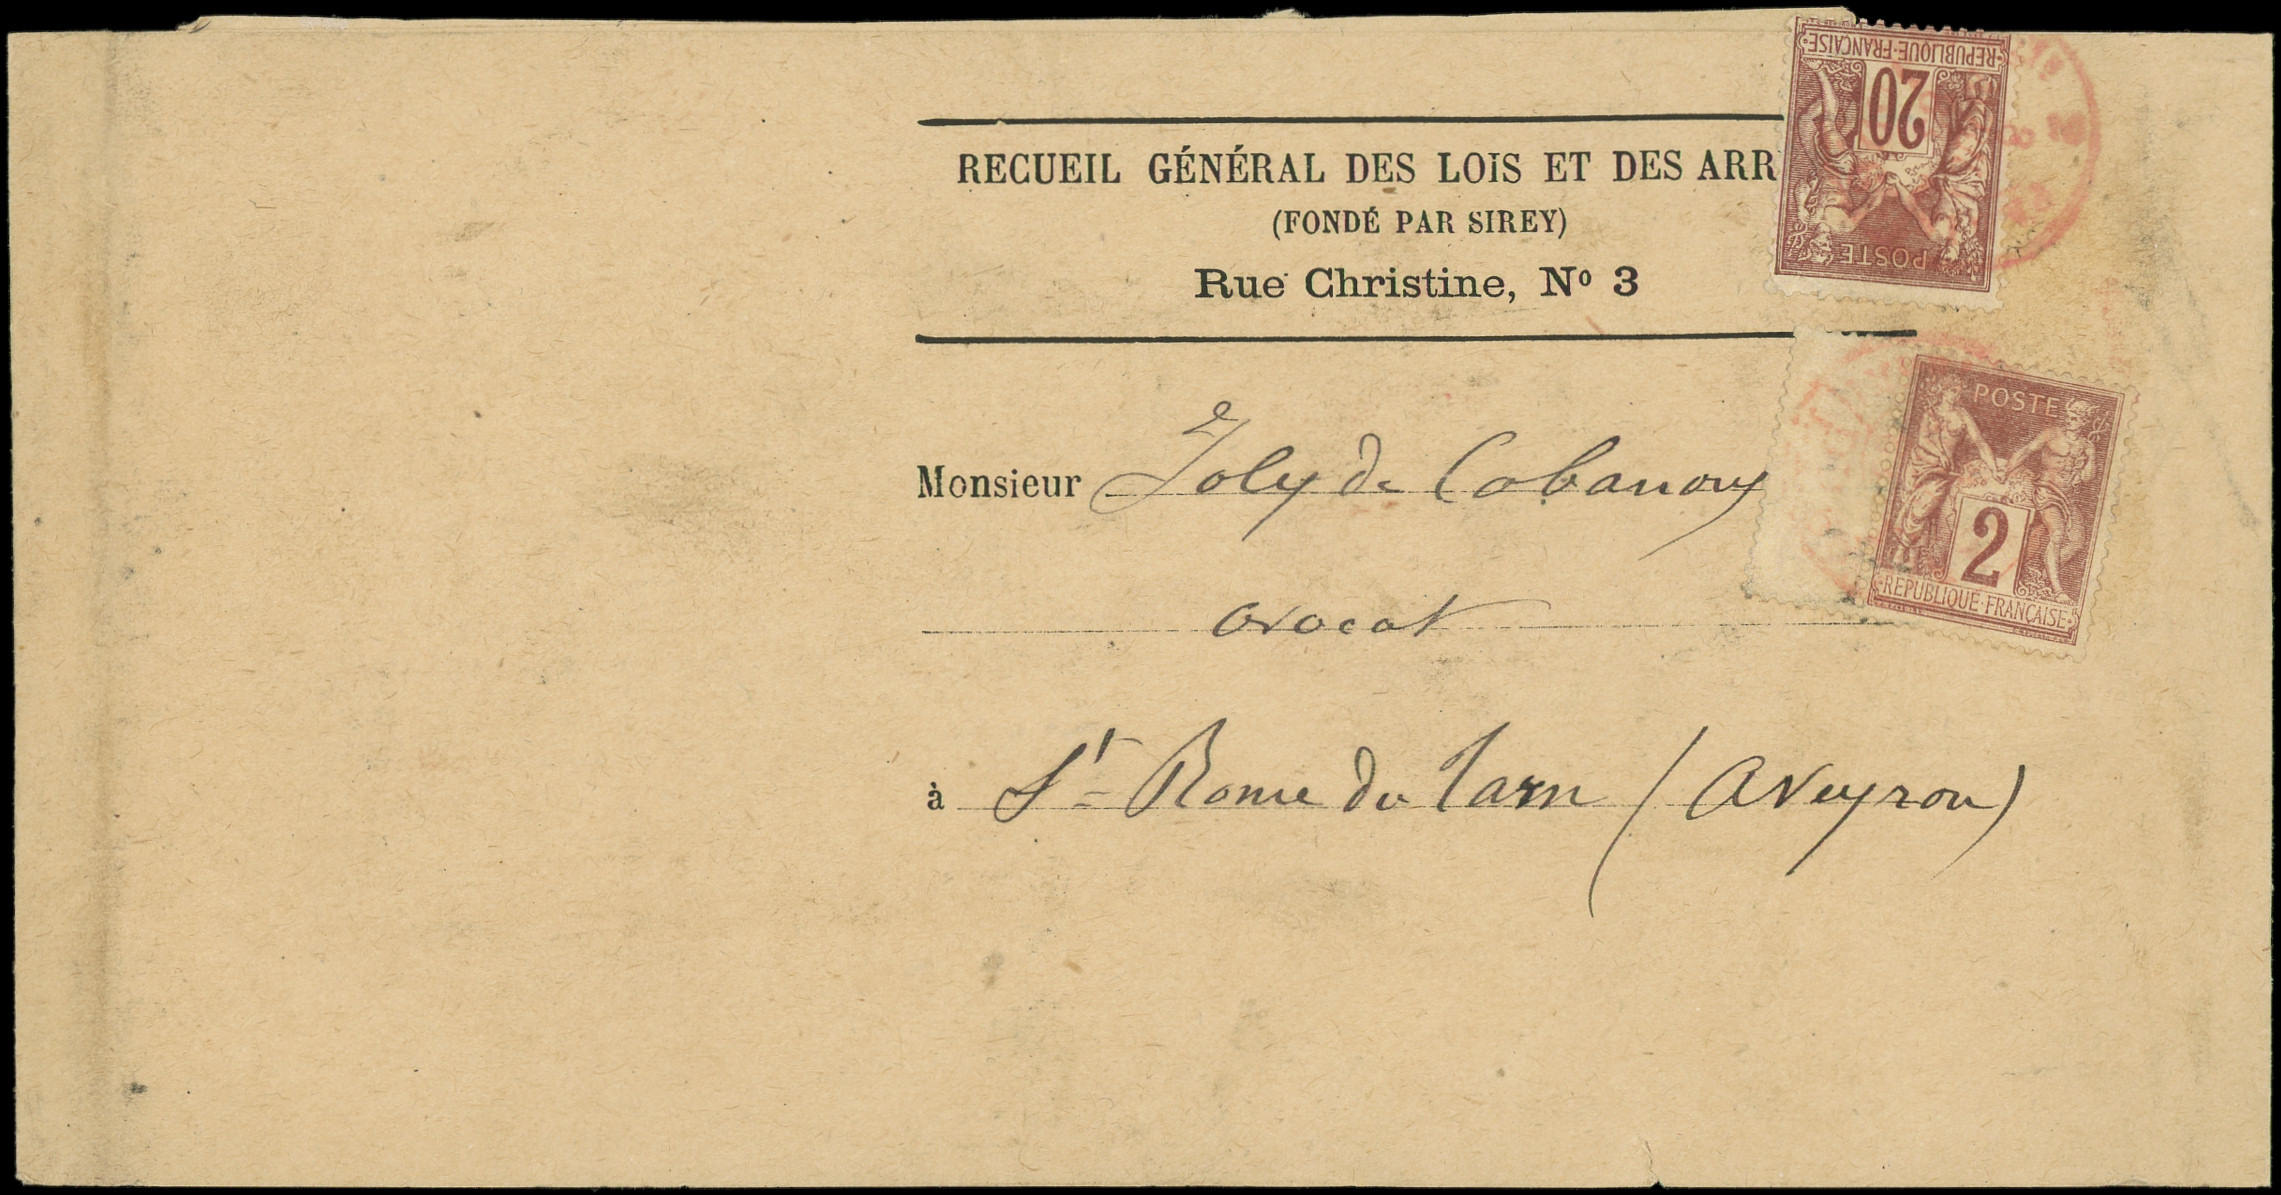 RECUEIL GÉNÉRAL DES LOIS ET DES ARR
(FONDÉ PAR SIREY)
Rue Christine, Nº 3
REPUBLIQUE·FRANÇAISE
20
POSTE
Monsieur Joly de Cabanous
avocat
à St Rome du Tarn (Aveyron)
POSTE
2
REPUBLIQUE·FRANÇAISE